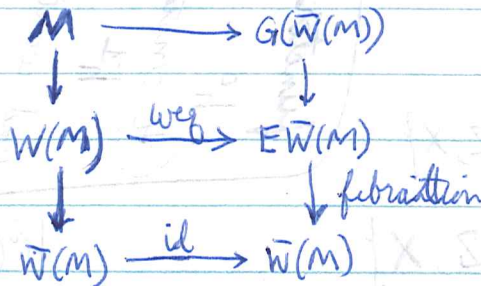 M → G(W̄(M))
↓ ↓
W(M) weq → EW̄(M)
↓ ↓ fibraittion
W̄(M) id → W̄(M)